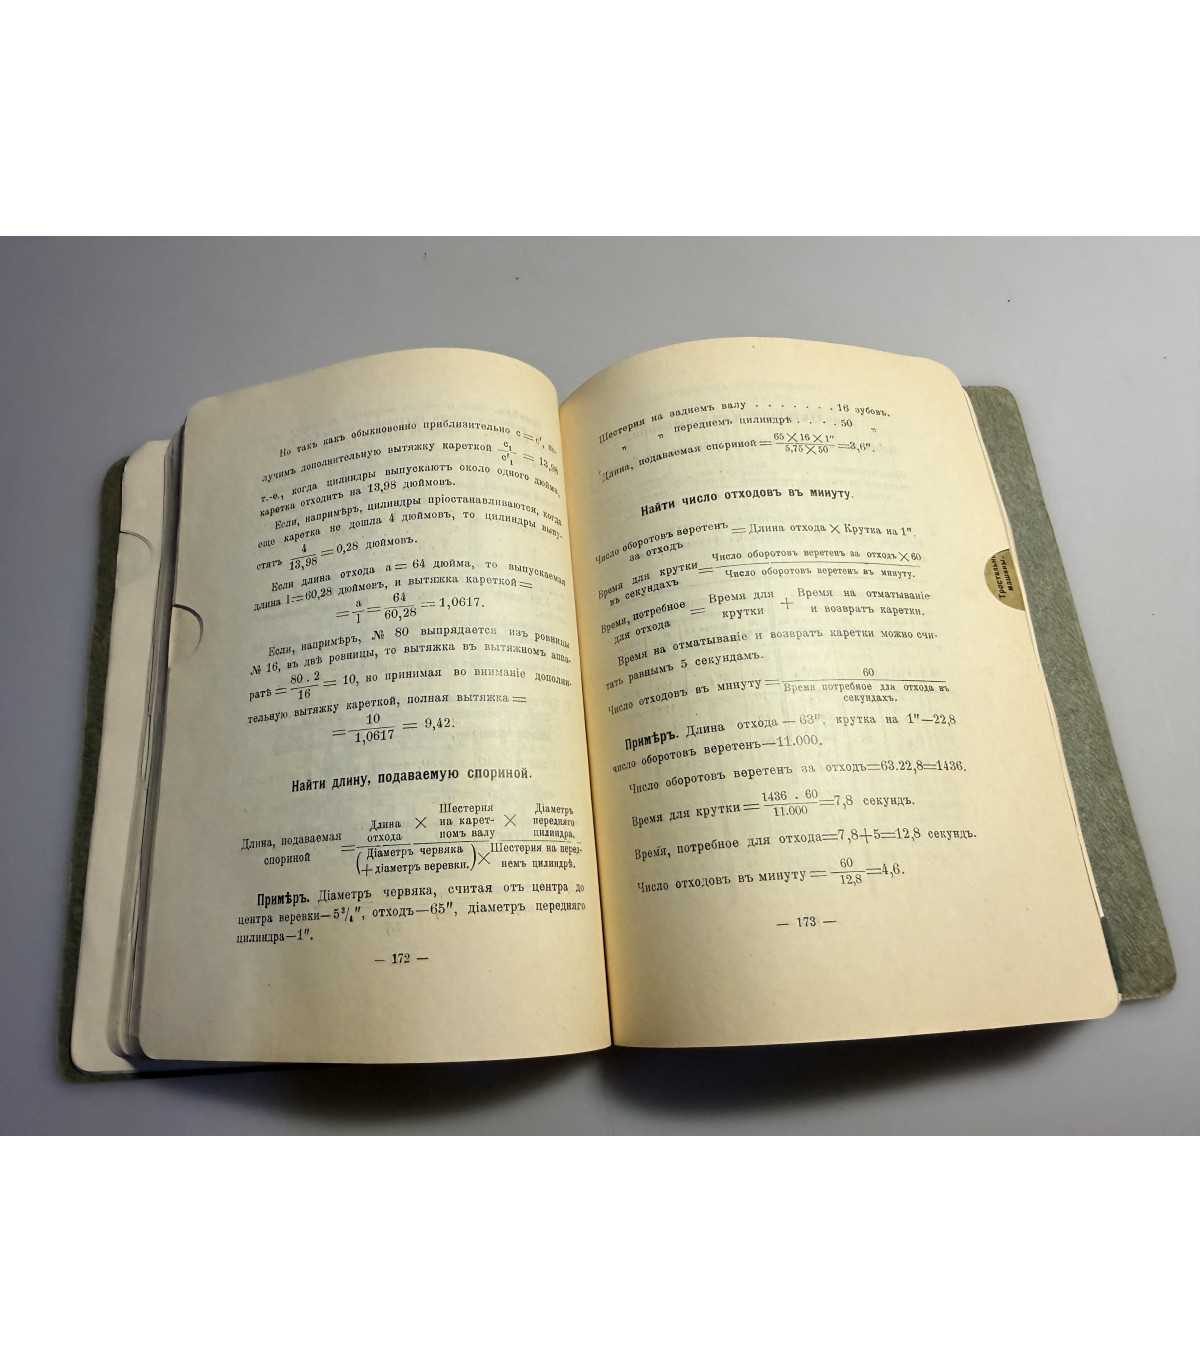 Но такъ какъ обыкновенно приблизительно c = c', по-
лучимъ дополнительную вытяжку кареткой c₁/c'₁ = 13,98
т.-е., когда цилиндры выпускаютъ около одного дюйма,
каретка отходитъ на 13,98 дюймовъ.
Если, напримѣръ, цилиндры пріостанавливаются, когда
еще каретка не дошла 4 дюймовъ, то цилиндры выпу-
стятъ 4/13,98 = 0,28 дюймовъ.
Если длина отхода a = 64 дюйма, то выпускаемая
длина l = 60,28 дюймовъ, и вытяжка кареткой =
= a/l = 64/60,28 = 1,0617.
Если, напримѣръ, № 80 выпрядается изъ ровницы
№ 16, въ двѣ ровницы, то вытяжка въ вытяжномъ аппа-
ратѣ = 80 . 2/16 = 10, но принимая во вниманіе дополни-
тельную вытяжку кареткой, полная вытяжка =
= 10/1,0617 = 9,42.
Найти длину, подаваемую спориной.
Длина, подаваемая спориной = Длина отхода × Шестерня на карет-номъ валу × Діаметръ передняго цилиндра. / (Діаметръ червяка + діаметръ веревки.) × Шестерня на перед-немъ цилиндрѣ.
Примѣръ. Діаметръ червяка, считая отъ центра до
центра веревки—5³/₄", отходъ—65", діаметръ передняго
цилиндра—1".
— 172 —
Шестерня на заднемъ валу . . . . . . . 16 зубовъ.
" " переднемъ цилиндрѣ . . . . 50 "
Длина, подаваемая спориной = 65 × 16 × 1"/5,75 × 50 = 3,6".
Найти число отходовъ въ минуту.
Число оборотовъ веретенъ за отходъ = Длина отхода × Крутка на 1".
Время для крутки въ секундахъ = Число оборотовъ веретенъ за отходъ × 60 / Число оборотовъ веретенъ въ минуту.
Время, потребное для отхода = Время для крутки + Время на отматываніе и возвратъ каретки.
Время на отматываніе и возвратъ каретки можно счи-
тать равнымъ 5 секундамъ.
Число отходовъ въ минуту = 60 / Время потребное для отхода въ секундахъ.
Примѣръ. Длина отхода — 63", крутка на 1"—22,8
число оборотовъ веретенъ—11.000.
Число оборотовъ веретенъ за отходъ=63.22,8=1436.
Время для крутки = 1436 . 60/11.000 = 7,8 секундъ.
Время, потребное для отхода=7,8+5=12,8 секундъ.
Число отходовъ въ минуту = 60/12,8 = 4,6.
— 173 —
машины.